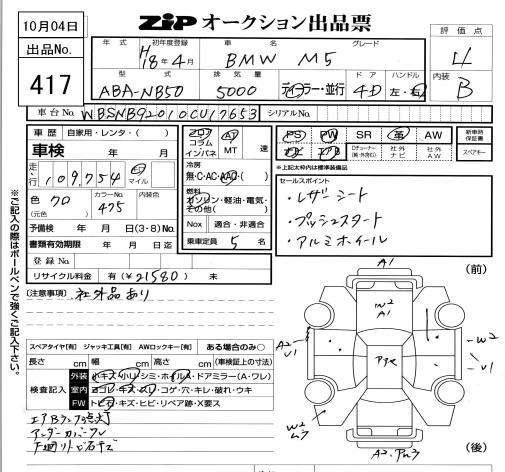 10月04日
ZIP オークション出品票
出品No.
417
評価点
4
内装
B
年式 初年度登録 車名 グレード
H18年4月 BMW M5
型式 排気量 ドア ハンドル
ABA-NB50 5000 ディーラー・並行 4D 左・右
車台No. WBSNB92010CU17653 シリアルNo.
車歴 自家用・レンタ・( )
車検 年 月
走行 109,754 マイル
色 クロ カラーNo. 475 内装色
(元色)
予備検 年 月 日(3・8)No.
書類有効期限 年 月 日迄
登録No.
リサイクル料金 有(¥21580) 未
フロア AT
コラム
インパネ MT 速
冷房
無・C・AC・AAC
燃料
ガソリン・軽油・電気・
その他( )
Nox 適合・非適合
乗車定員 5 名
PS PW SR 革 AW
新車時保証書
スペアキー
社外ナビ 社外AW
※上記太枠内は標準装備品
セールスポイント
・レザーシート
・プッシュスタート
・アルミホイール
注意事項
社外品あり
※ご記入の際はボールペンで強くご記入下さい。
スペアタイヤ[有] ジャッキ工具[有] AWロックキー[有] ある場合のみ○
長さ cm 幅 cm 高さ cm (車検証上の寸法)
検査記入
外装 小キズ・小凹・シミ・ホイル・ドアミラー(A・ワレ)
室内 ヨゴレ・キズ・スリ・コゲ・穴・キレ・破れ・ウキ
FW トビ石・キズ・ヒビ・リペア跡・X要ス
エアBランプ点灯
アンダーカバーワレ
(前)
A1
W2
A1
A2
U1
W2
U1
W2
(後)